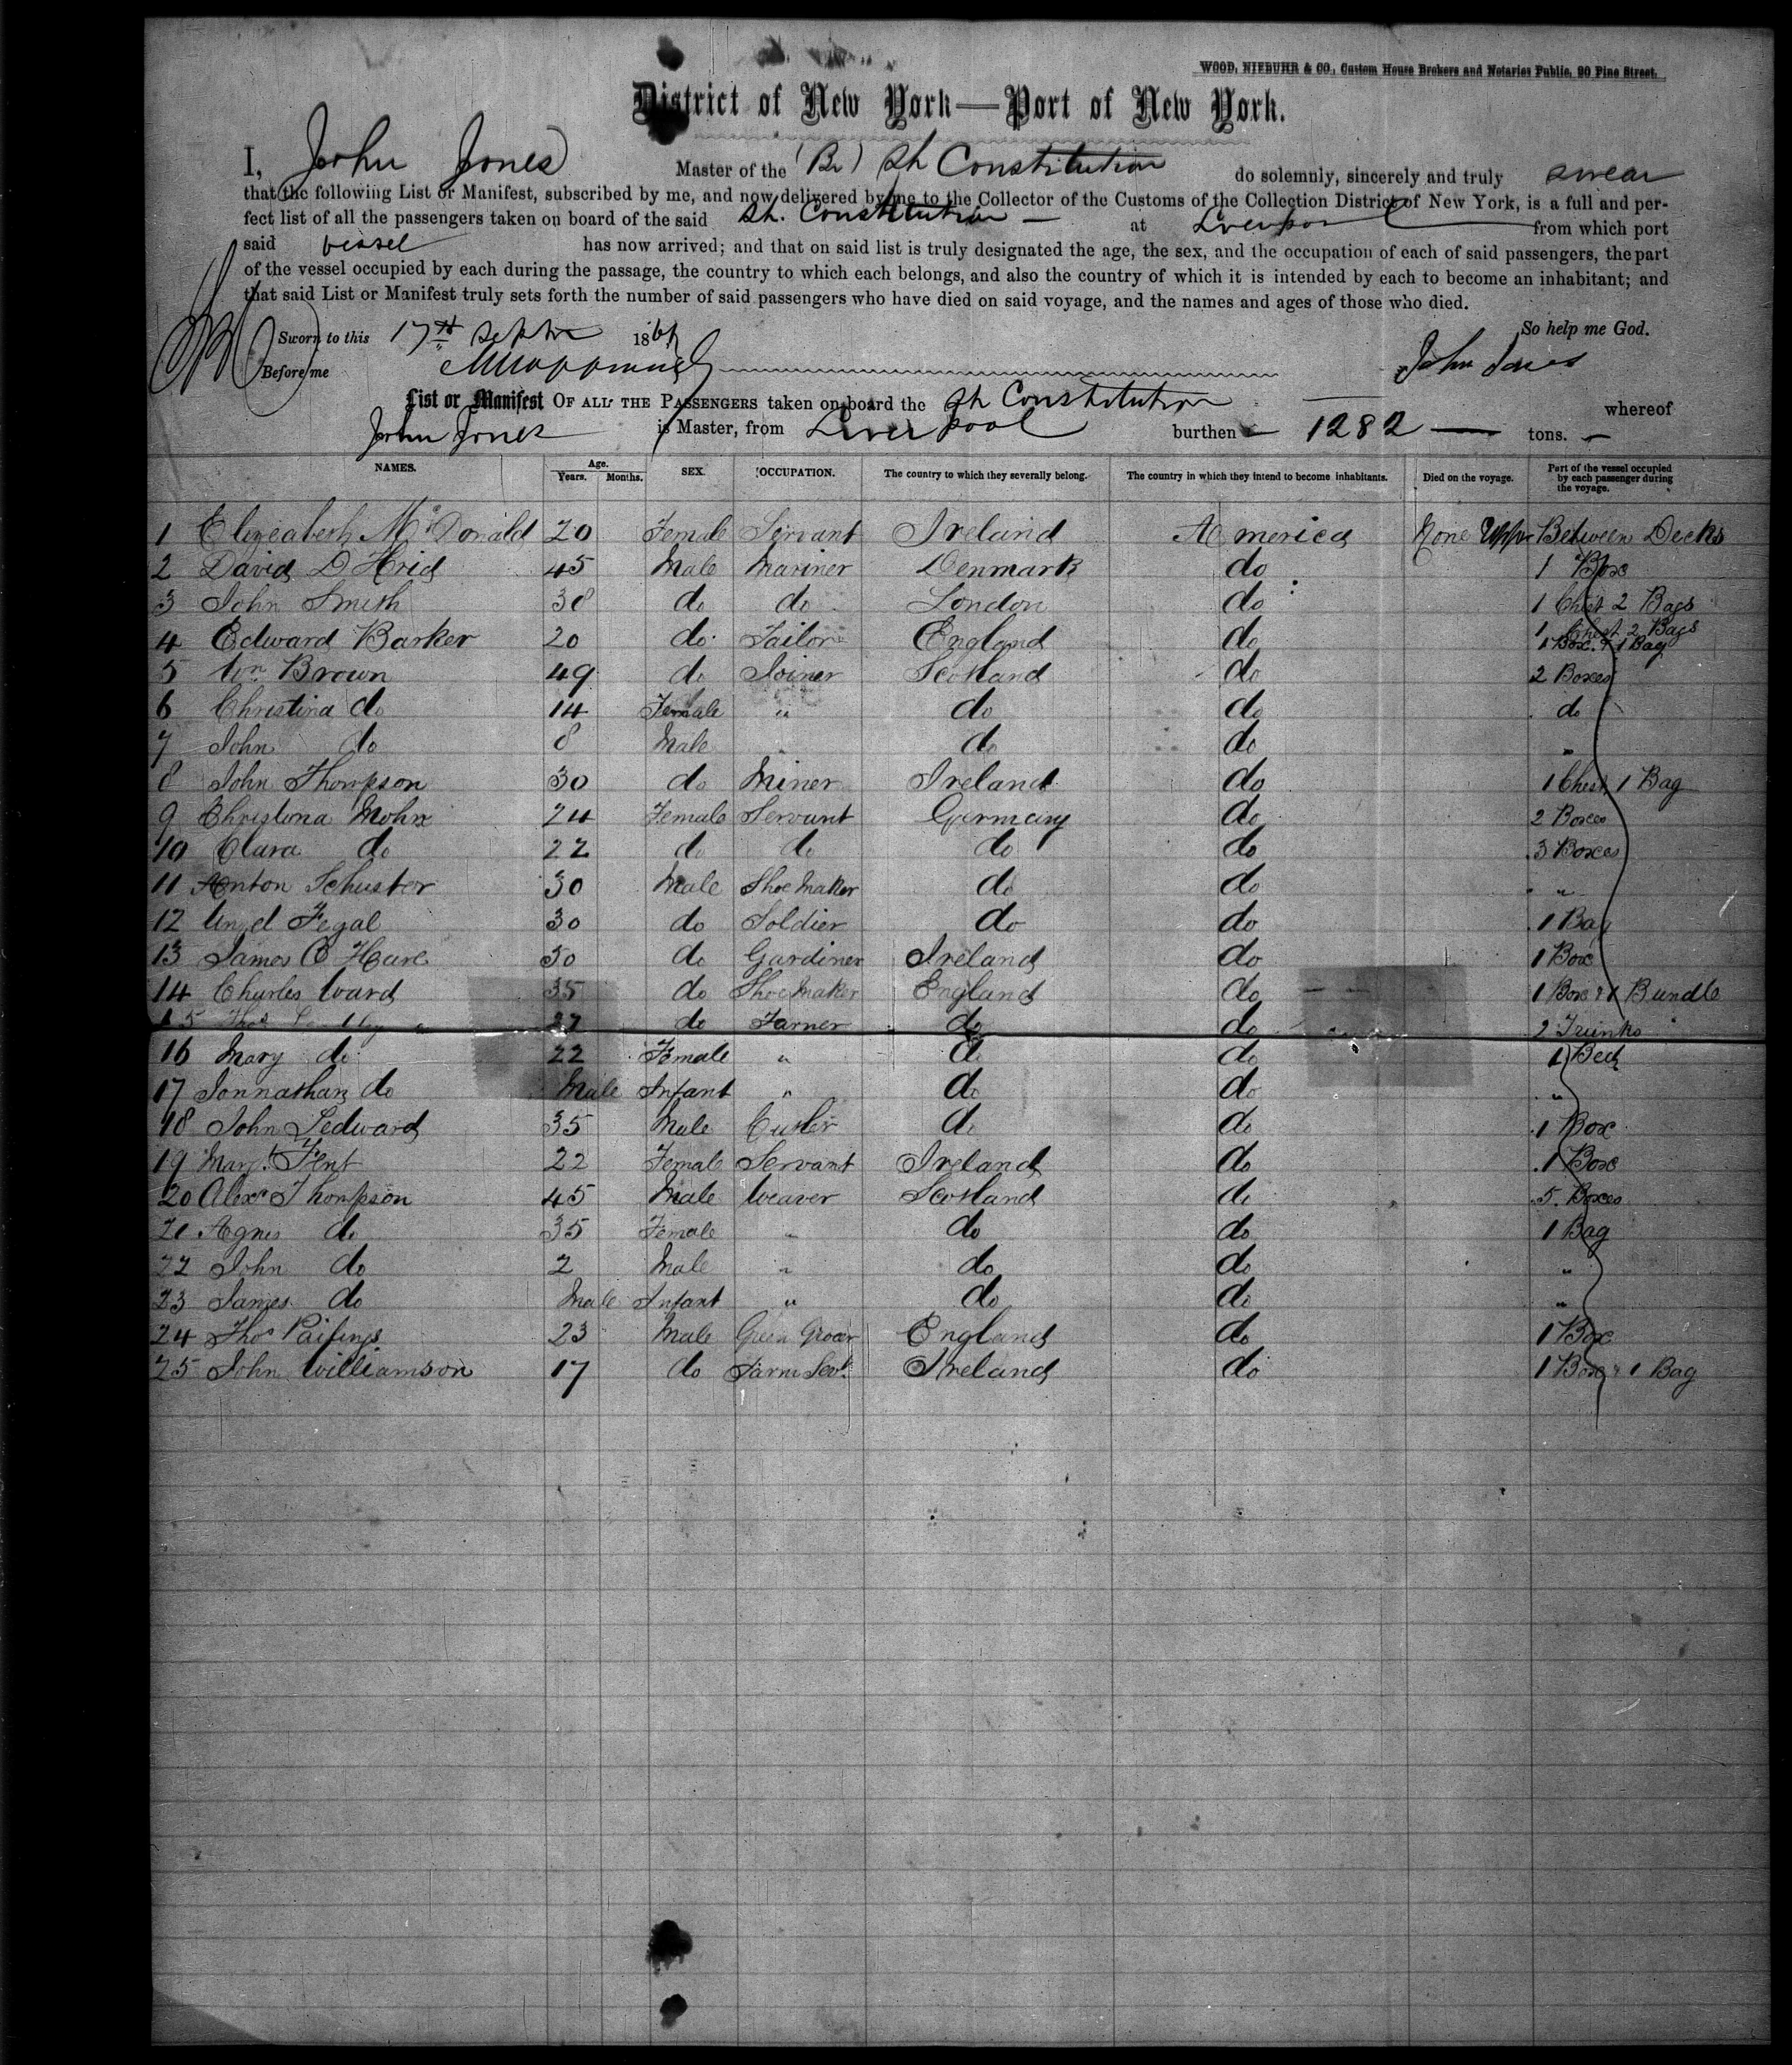 WOOD, NIEBUHR & CO., Custom House Brokers and Notaries Public, 90 Pine Street.
District of New York—Port of New York.
I, John Jones Master of the (Br) Sh Constitution do solemnly, sincerely and truly swear
that the following List or Manifest, subscribed by me, and now delivered by me to the Collector of the Customs of the Collection District of New York, is a full and per-
fect list of all the passengers taken on board of the said Sh. Constitution — at Liverpool from which port
said vessel has now arrived; and that on said list is truly designated the age, the sex, and the occupation of each of said passengers, the part
of the vessel occupied by each during the passage, the country to which each belongs, and also the country of which it is intended by each to become an inhabitant; and
that said List or Manifest truly sets forth the number of said passengers who have died on said voyage, and the names and ages of those who died.
So help me God.
Sworn to this 17th Septbr 186
Before me John Jones
List or Manifest OF ALL THE PASSENGERS taken on board the Sh Constitution whereof
John Jones is Master, from Liverpool burthen — 1282 — tons. —
NAMES. Age. Years. Months. SEX. OCCUPATION. The country to which they severally belong. The country in which they intend to become inhabitants. Died on the voyage. Part of the vessel occupied by each passenger during the voyage.
1 Elizeabeth McDonald 20 Female Servant Ireland America None Uppr Between Decks
2 David D Hrid 45 Male Mariner Denmark do 1 Box
3 John Smith 38 do do London do 1 Chest 2 Bags
4 Edward Barker 20 do Tailor England do 1 Chest 2 Bags
1 Box & 1 Bag
5 Wm Brown 49 do Joiner Scotland do 2 Boxes
6 Christina do 14 Female " do do do
7 John do 8 Male " do do "
8 John Thompson 30 do Miner Ireland do 1 Chest 1 Bag
9 Christina Mohr 24 Female Servant Germany do 2 Boxes
10 Clara do 22 do do do do 3 Boxes
11 Anton Schuster 30 Male Shoe Maker do do "
12 Fegal 30 do Soldier do do 1 Bag
13 James O Hare 50 do Gardiner Ireland do 1 Box
14 Charles Ward 35 do Shoe Maker England do 1 Box & 1 Bundle
15 Thos 27 do Farmer do do 2 Trunks
16 Mary do 22 Female " do do 1 Bed
17 Jonnathan do Male Infant " do do "
18 John Ledward 35 Male Cutler do do 1 Box
19 Margt Fent 22 Female Servant Ireland do 1 Box
20 Alexr Thompson 45 Male Weaver Scotland do 5 Boxes
21 Agnes do 35 Female " do do 1 Bag
22 John do 2 Male " do do "
23 James do Male Infant " do do "
24 Thos 23 Male Green Grocer England do 1 Box
25 John Williamson 17 do Farm Sevt. Ireland do 1 Box & 1 Bag